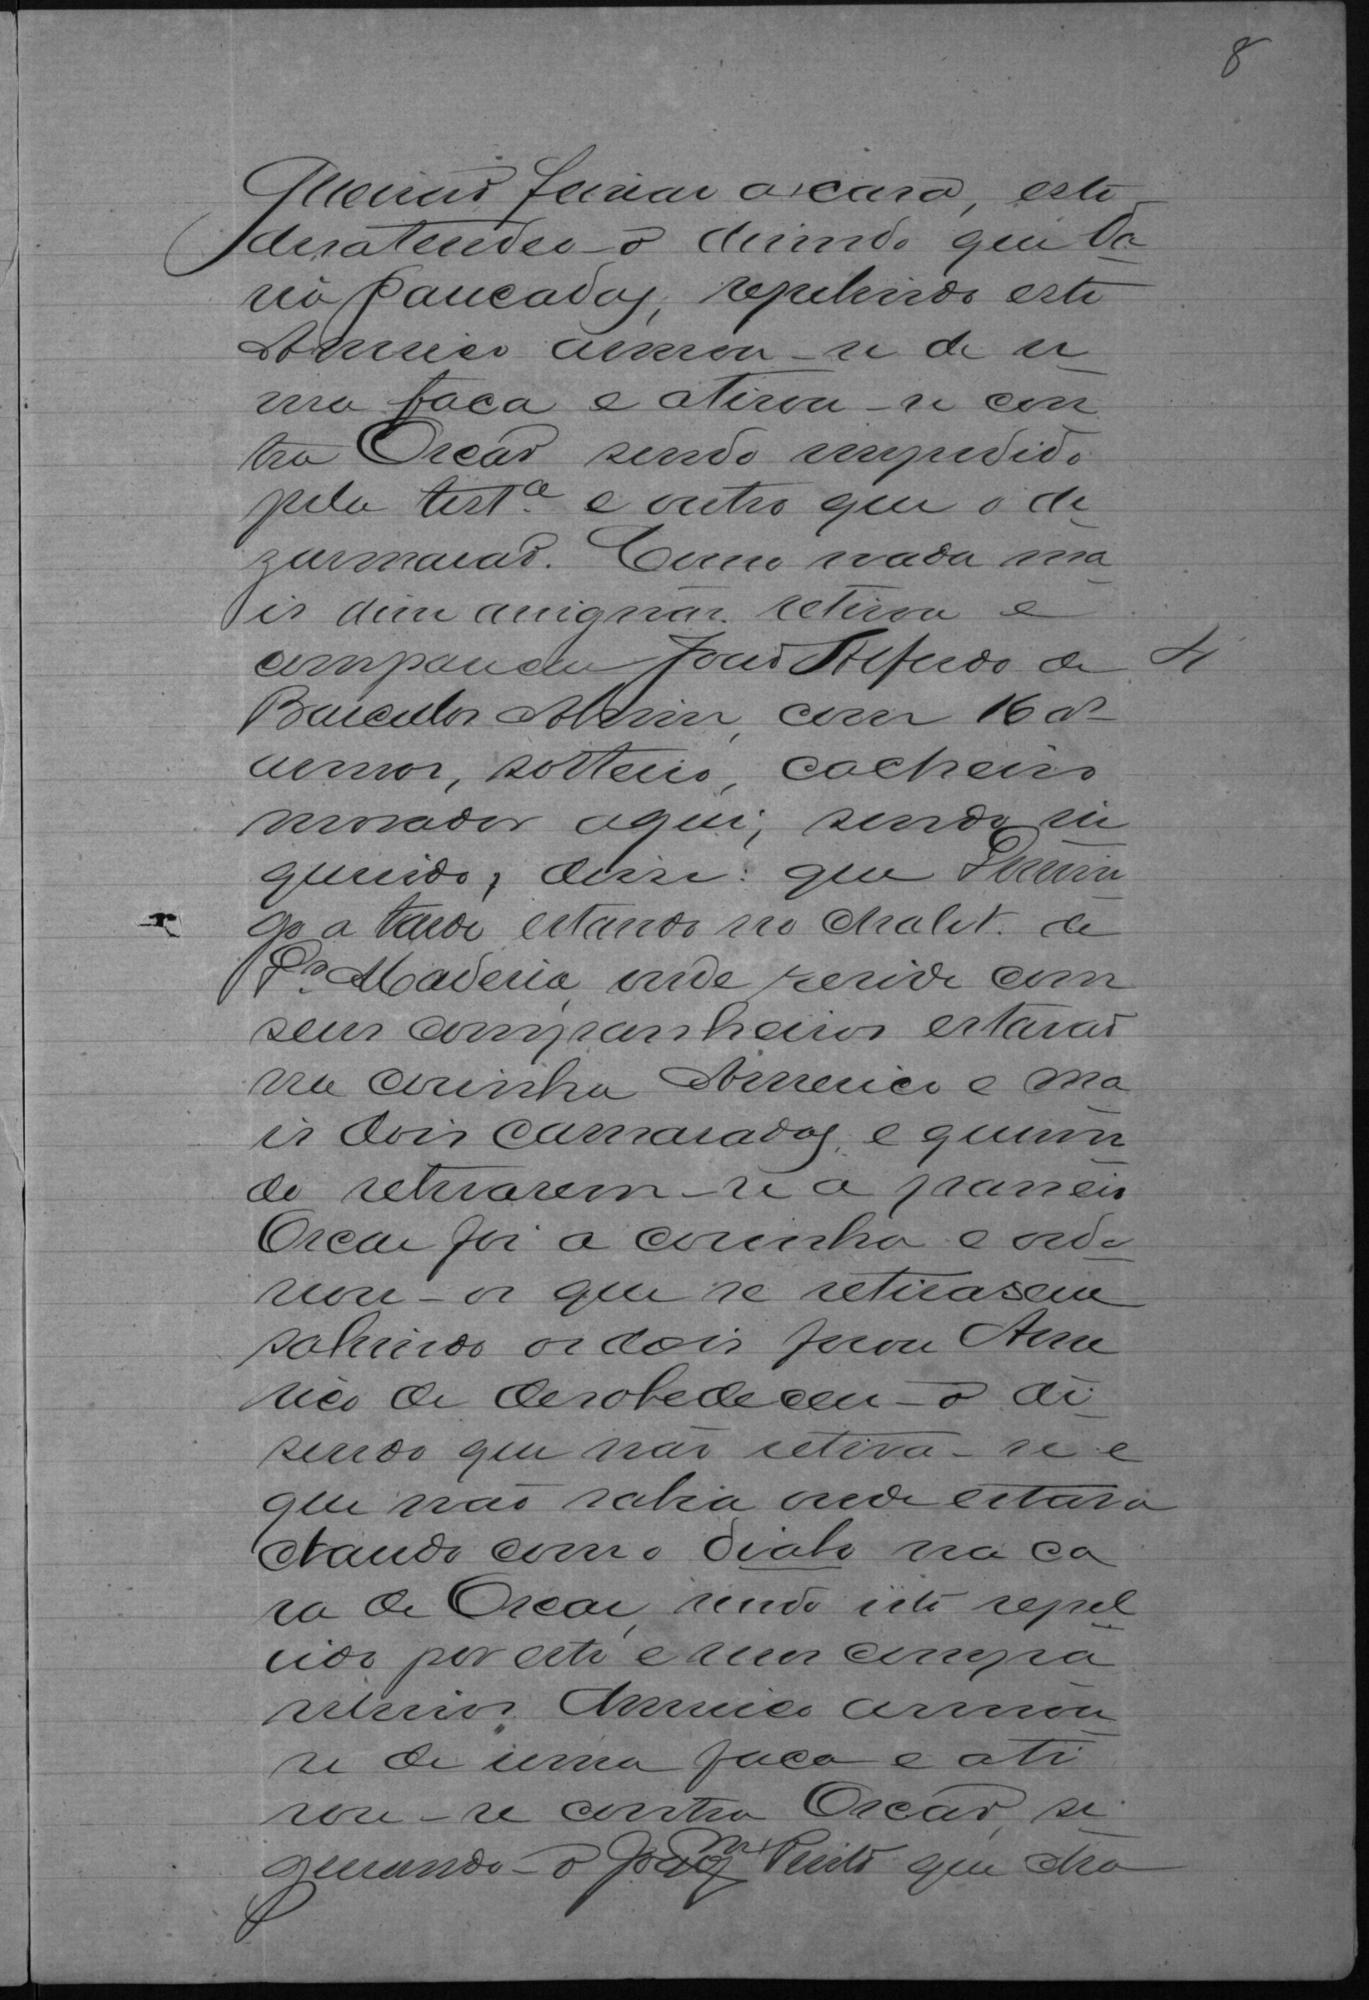 8
queriaõ feixar a casa, este
desatendeo-o disendo que da
ria pancadas, repelindo este
Americo armou-se de u
ma faca e atirou-se con
tra Oscar sendo impedido
pela test.ª e outro que o de
zarmaraõ. Como nada ma
is disse assignar. retirou e
compareceu João Alfredo de 4
Vasculos Alvim, com 16 as
annos, solteiro, cocheiro
morador aqui; sendo in
querido, disse: que Domin
go a tarde estando no chalet. de
Pª Maderia, onde reside com
seus companheiros estavaõ
na cosinha Americo e ma
is dois camaradas, e queren
do retirarem-se a passeio
Oscar foi a cosinha e orde
nou-os que se retirasem
sahindo os dois ficou Ame
rico de desobedeceu-o di
sendo que naõ retira-se e
que naõ sabia onde estava
dando com o dialo na ca
ra de Oscar, sendo isto repel
lido por este e seus compa
nheiros. Americo armou
se de uma faca e ati
rou-se contra Oscar, se
gurando-o Joaqm Pinto que cha